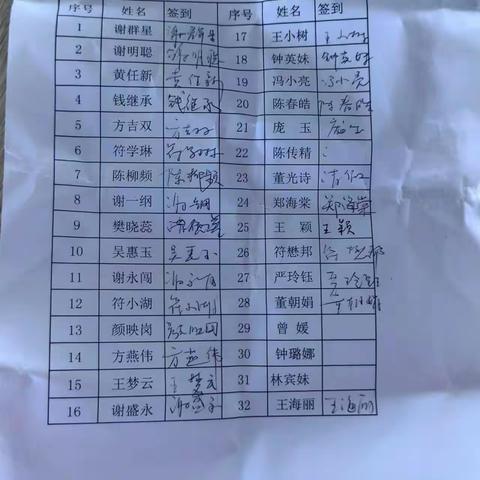 序号 姓名 签到 序号 姓名 签到
1 谢群星 谢群星 17 王小树 王小树
2 谢明聪 谢明聪 18 钟英妹 钟英妹
3 黄任新 黄任新 19 冯小亮 冯小亮
4 钱继承 钱继承 20 陈春皓 陈春皓
5 方吉双 方吉双 21 庞玉 庞玉
6 符学琳 符学琳 22 陈传精
7 陈柳频 陈柳频 23 董光诗
8 谢一纲 谢一纲 24 郑海棠 郑海棠
9 樊晓蕊 樊晓蕊 25 王颖 王颖
10 吴惠玉 吴惠玉 26 符懋邦 符懋邦
11 谢永闯 谢永闯 27 严玲钰 严玲钰
12 符小湖 符小湖 28 董朝娟
13 颜映岗 颜映岗 29 曾媛
14 方燕伟 方燕伟 30 钟璐娜
15 王梦云 王梦云 31 林宾妹
16 谢盛永 谢盛永 32 王海丽 王海丽